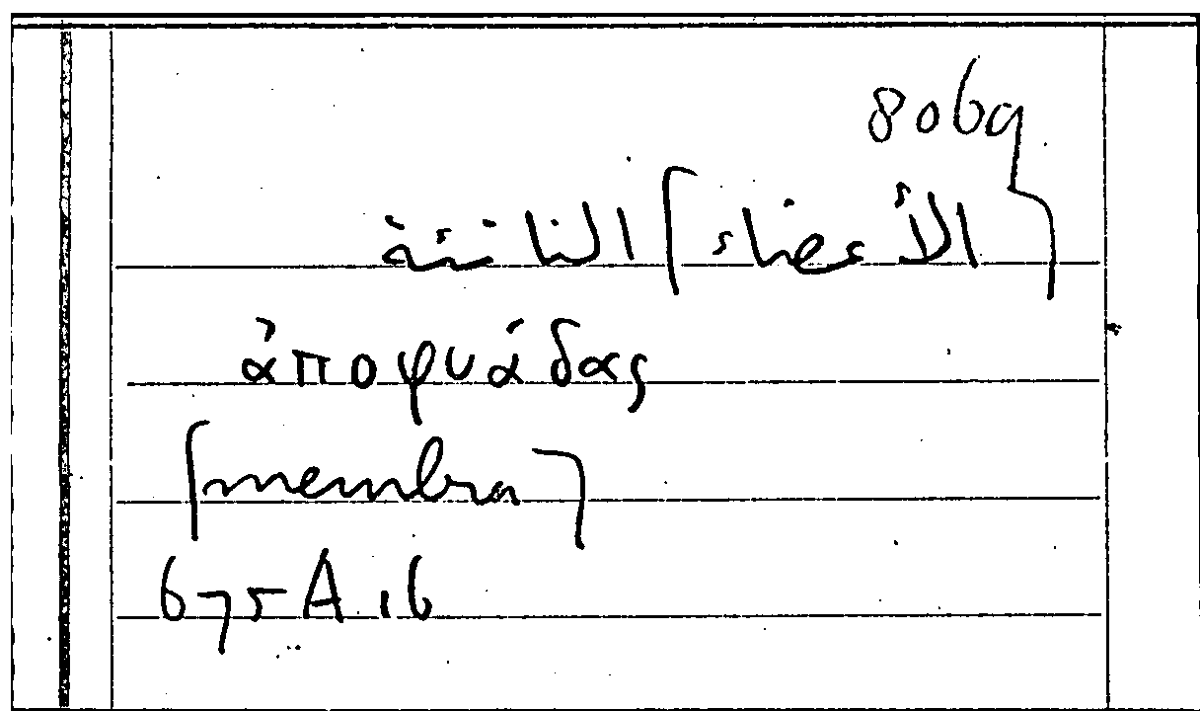 8069
[الأعضاء] الناتئة
ἀποφυάδας
[membra]
675A.16